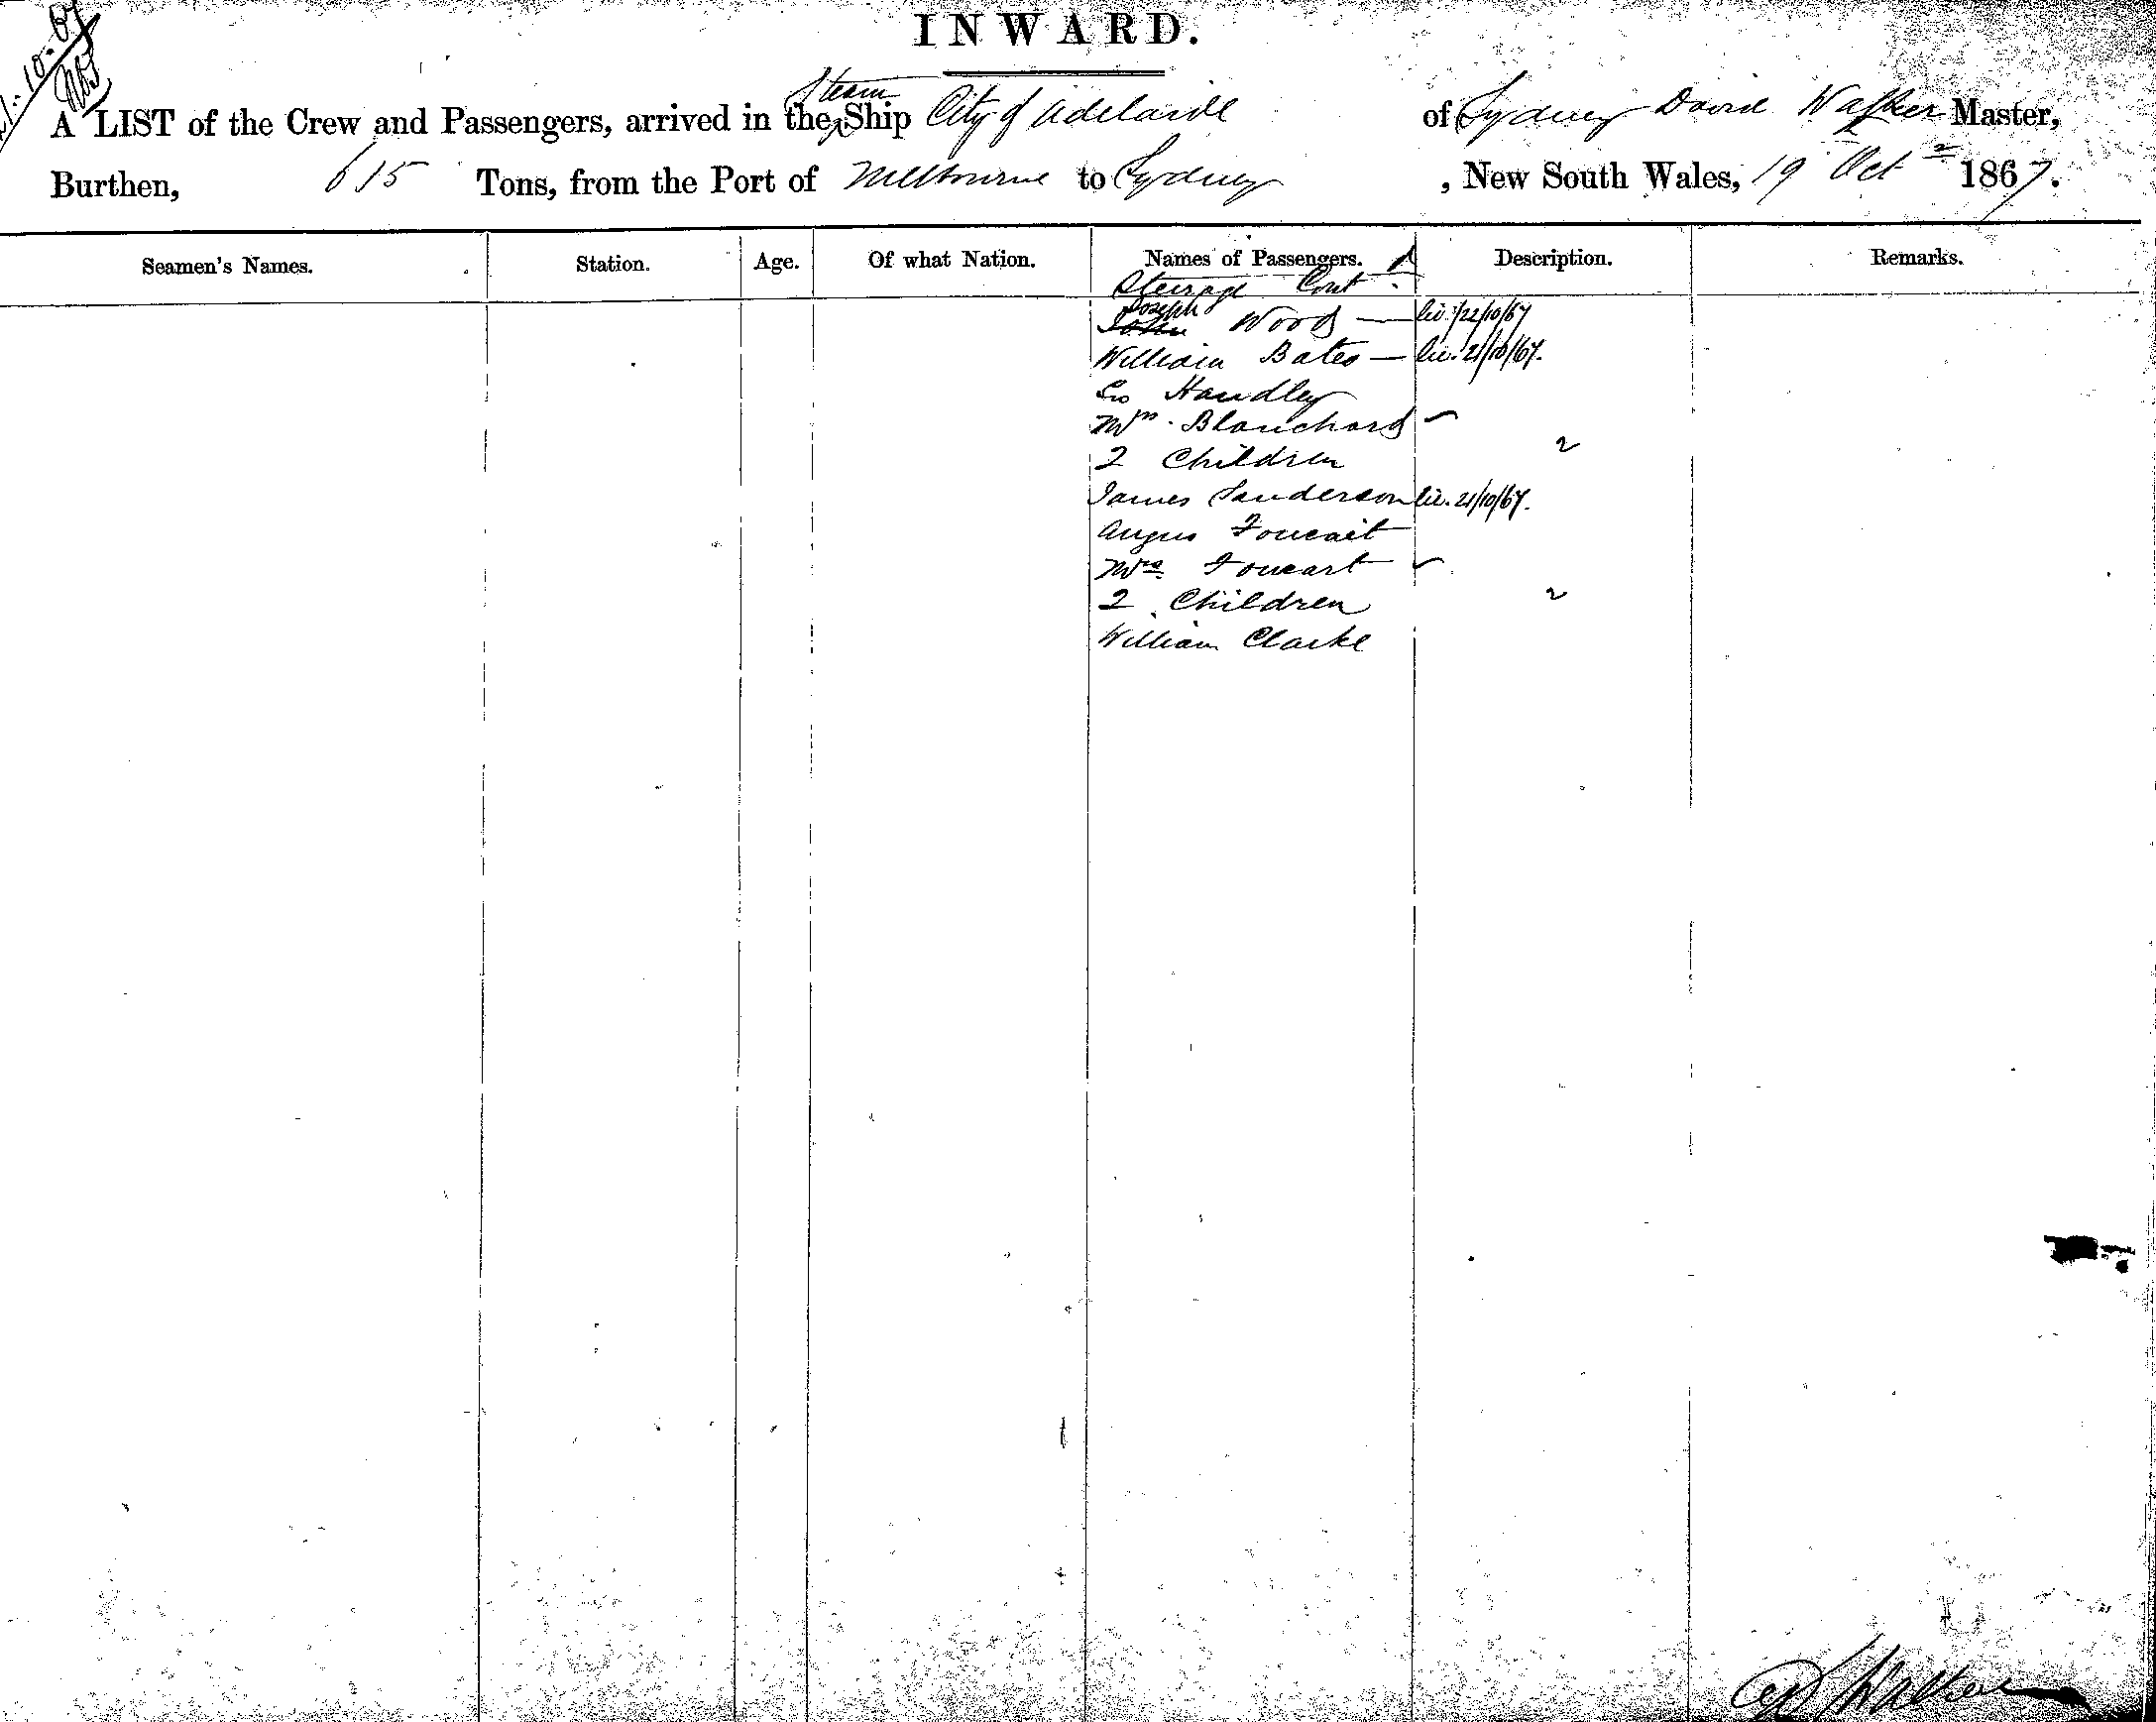 INWARD.
A LIST of the Crew and Passengers, arrived in the Steam Ship City of Adelaide of Sydney David Walker Master,
Burthen, 615 Tons, from the Port of Melbourne to Sydney, New South Wales, 19 Oct 1867.
Seamen's Names. Station. Age. Of what Nation. Names of Passengers. Description. Remarks.
Steerage Cont
Joseph
John Wood — lic. 22/10/67
William Bates — lic. 21/10/67.
Handley
Blanchard
2 Children 2
James Sanderson lic. 21/10/67.
Angus Foucait
Mrs Foucart
2 Children 2
William Clarke
Walker